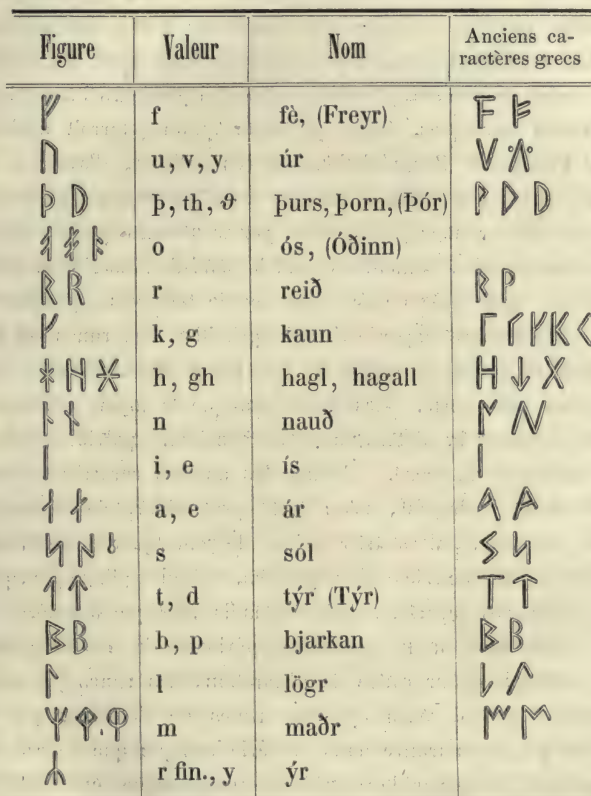 Figure Valeur Nom Anciens ca-
ractères grecs
ᚠ f fè, (Freyr) F
ᚢ u, v, y úr V
ᚦ D þ, th, ϑ þurs, þorn, (Þór) D
ᚬ o ós, (Óðinn)
ᚱ R r reið P
ᚴ k, g kaun Γ K
ᚼ H h, gh hagl, hagall H ↓ X
ᚾ n nauð N
ᛁ i, e ís I
ᛅ a, e ár A
ᛋ s sól
ᛏ t, d týr (Týr) T
ᛒ B b, p bjarkan B
ᛚ l lögr
ᛘ m maðr
ᛦ r fin., y ýr